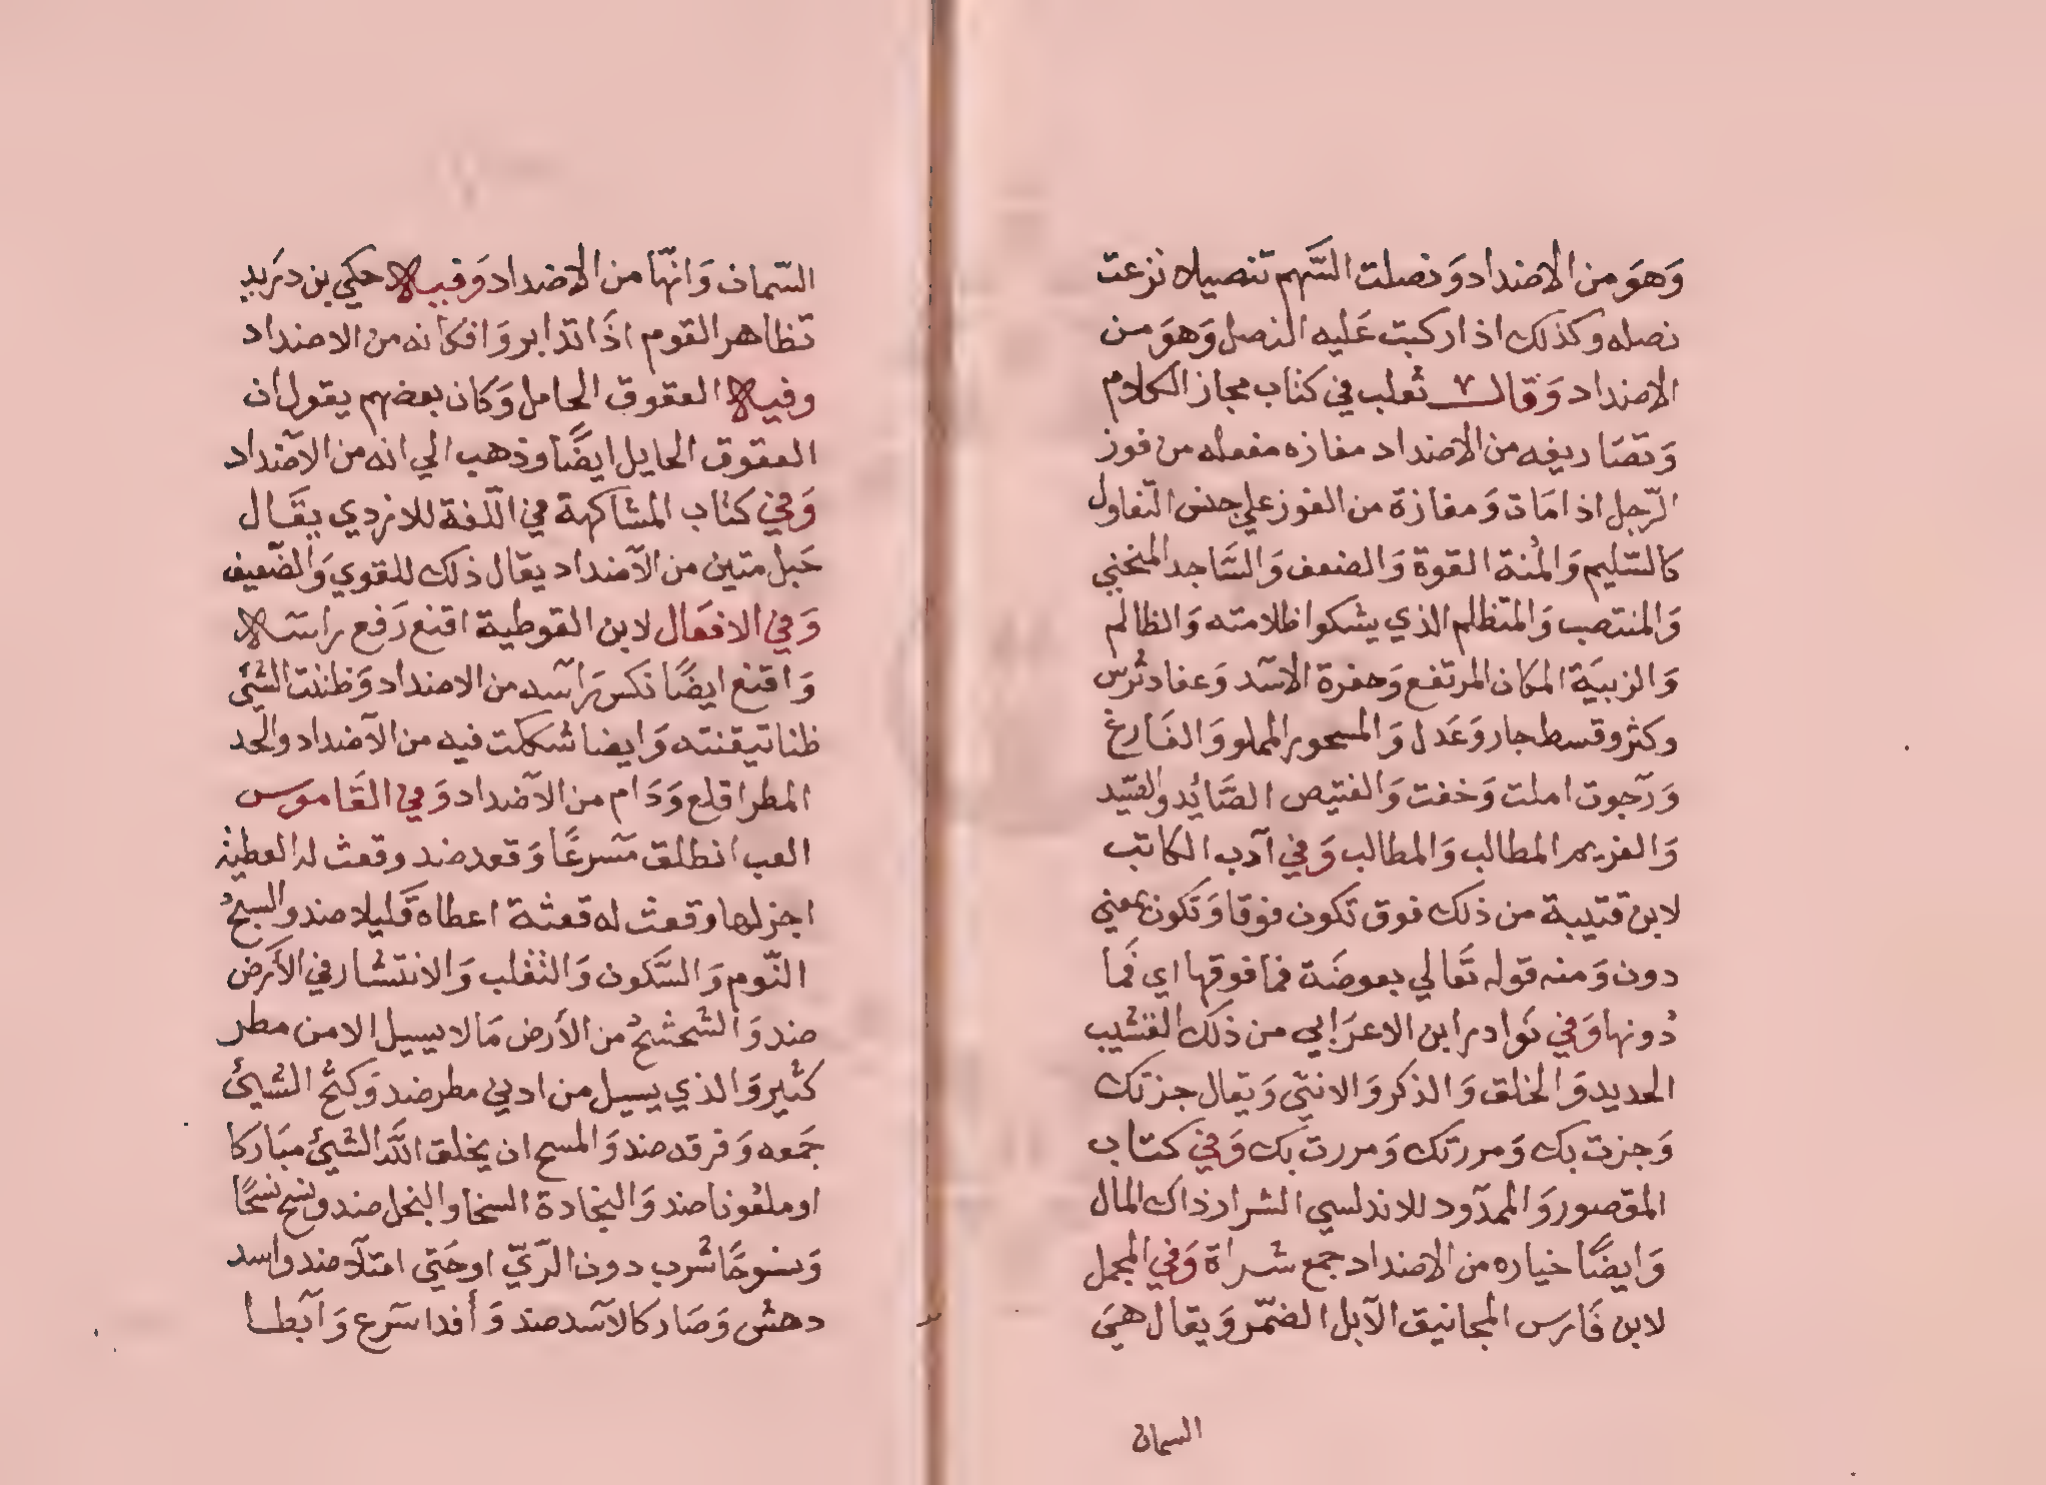 وَهوَ من الاضداد وَنصلت السَّهم تنصيلا نزعت
نصله وكذلك اذا ركبت عَليه النصل وَهوَ من
الاضداد وَقال ثعلب في كتاب مجاز الكلام
وَتصَاريفه من الاضداد مفازه مفعله من فوز
الرّجل اذا مَات وَمفازة من الفوز علي جنس التّفاول
كالسّليم وَالمُنة القوة وَالضعف وَالسَّاجد المنحني
وَالمنتصب وَالمتظلم الذي يشكوا ظلامته وَالظالم
وَالزبيَة المكان المرتفع وَحفرة الاسَد وَعفا دثرس
وكثر وقسط جار وَعَدل وَالمسجور المملو وَالفَارغ
وَرَجوت املت وَخفت وَالقنيص الصَّائِد والصّيد
وَالغريم المطالب وَالمطالب وَفي آدب الكاتب
لابن قتيبة من ذلك فوق تكون فوقا وَتَكون بمعني
دون وَمنه قوله تَعَالي بعوضَة فما فوقها اي فَما
دُونها وَفي نَوادر ابن الاعرَابي من ذلك القشيب
الجديد وَالخلق وَالذكر وَالانثي وَيقال جزتك
وَجزت بك وَمررتك وَمررت بك وَفي كتاب
المقصور وَالممدَود للاندلسي الشرا رذاك المال
وَايضًا خياره من الاضداد جمع شراة وَفي المجمل
لابن فَارَس المجانيق الآبل الضمّر وَيقال هيَ
السمان
السّمان وَانهّا من الاضداد وَفيه حكي بن دريد
تظاهر القوم اذَا تدابروَا فكانه من الاضداد
وفيه العقوق الحامل وَكان بعضهم يقول ان
العقوق الحايل ايضًا وذهب الي انه من الآضداد
وَفي كتاب المشاكهة في اللّغة للازدي يقَال
حَبل متين من الآضداد يقال ذلك للقوي وَالضّعيف
وَفي الافعَال لابن القوطية اقنع رَفع راسَه
وَاقنع ايضًا نكس رَاسَه من الاضداد وَظننت الشئ
ظنا تيقنته وَايضا شككت فيه من الآضداد والحد
المطر اقلع وَدَام من الآضداد وَفي القَاموَس
العب انطلق مسَرعًا وَقعد ضد وقعث له العطية
اجزلها وقعث له قعثة اعطاه قَليلا ضد والسبحُ
النّوم وَالسَّكون وَالتقلب وَالانتشار في الأرَض
ضد وَالشحشحُ من الأرض مَا لا يسيل الا من مطر
كثير وَالذي يسيل من ادني مطر ضد وَكثح الشيئ
جَمعه وَفرقه ضد وَالمسح ان يخلق اللَّه الشيئ مبَاركا
او ملعُونا ضد وَالبخادة السخا والبخل ضد ونشح نشحًا
وَنشوحًا شرب دون الرّيّ او حَتي امتلآ ضد واسد
دهش وَصَار كالآسَد ضد وَأفدا سَرع وَآبطا